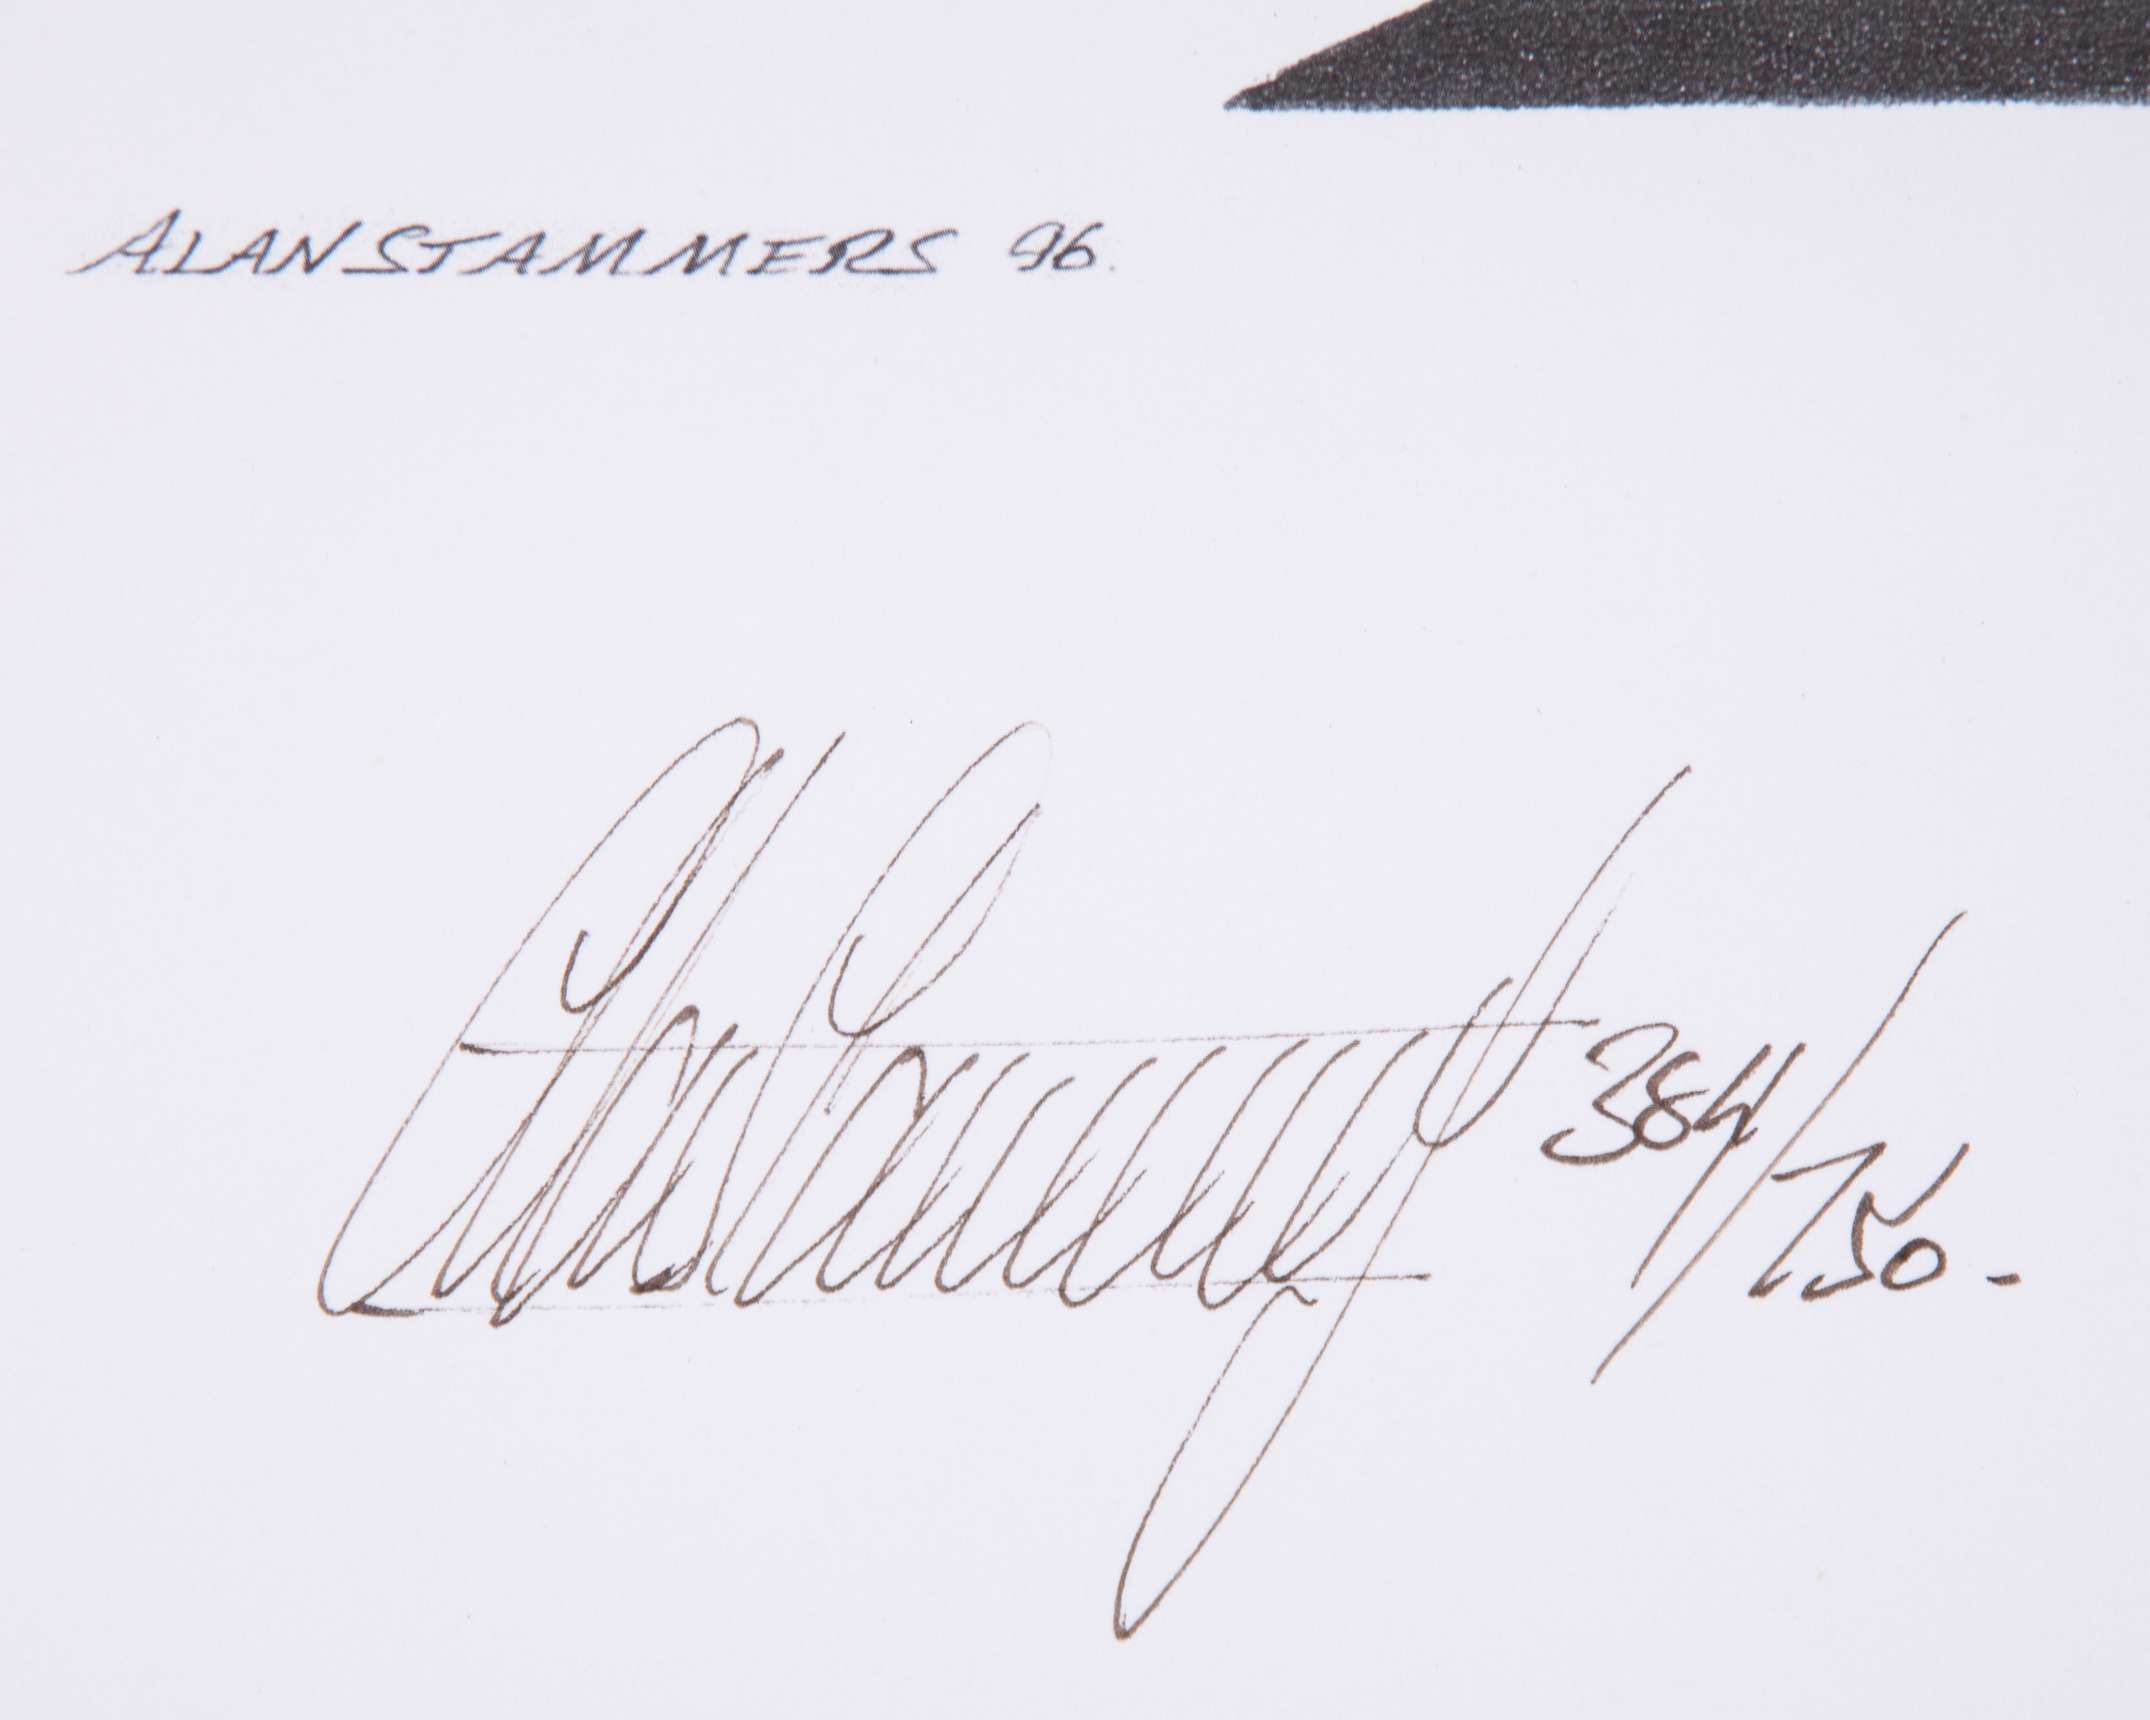 ALAN STAMMERS 96.
384/750-